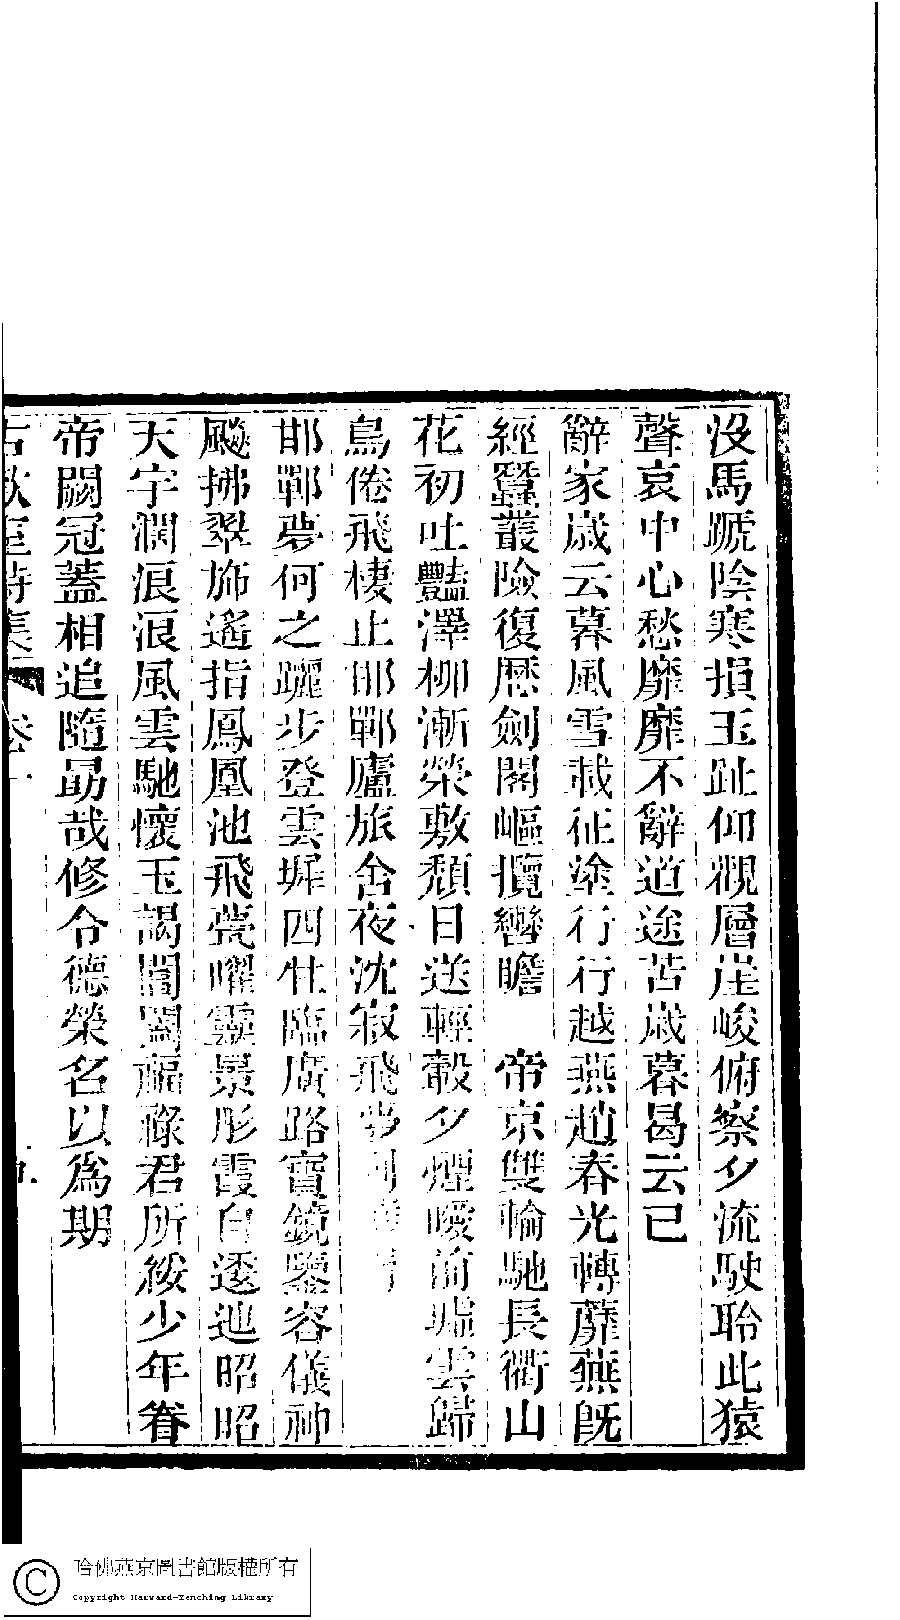 沒馬蹏陰寒損玉趾仰觀層崖峻俯察夕流駛聆此猿
聲哀中心愁靡靡不辭道途苦歲暮曷云已
辭家歲云暮風雪載征塗行行越燕趙春光轉蘼蕪旣
經蠶叢險復歷劍閣嶇攬轡瞻 帝京雙輪馳長衢山
花初吐豔澤柳漸榮敷頹日送輕轂夕煙曖前墟雲歸
鳥倦飛棲止邯鄲廬旅舍夜沈寂飛夢
邯鄲夢何之躧步登雲墀四牡臨廣路寶鏡鑒容儀神
飈拂翠斾遙指鳳凰池飛甍曜靈景彤霞自逶迆昭昭
天宇濶浪浪風雲馳懷玉謁閶闔福祿君所綏少年眷
帝闕冠蓋相追隨勗哉修令德榮名以爲期
古歡室詩集 卷一
哈佛燕京圖書館版權所有
Copyright Harvard-Yenching Library